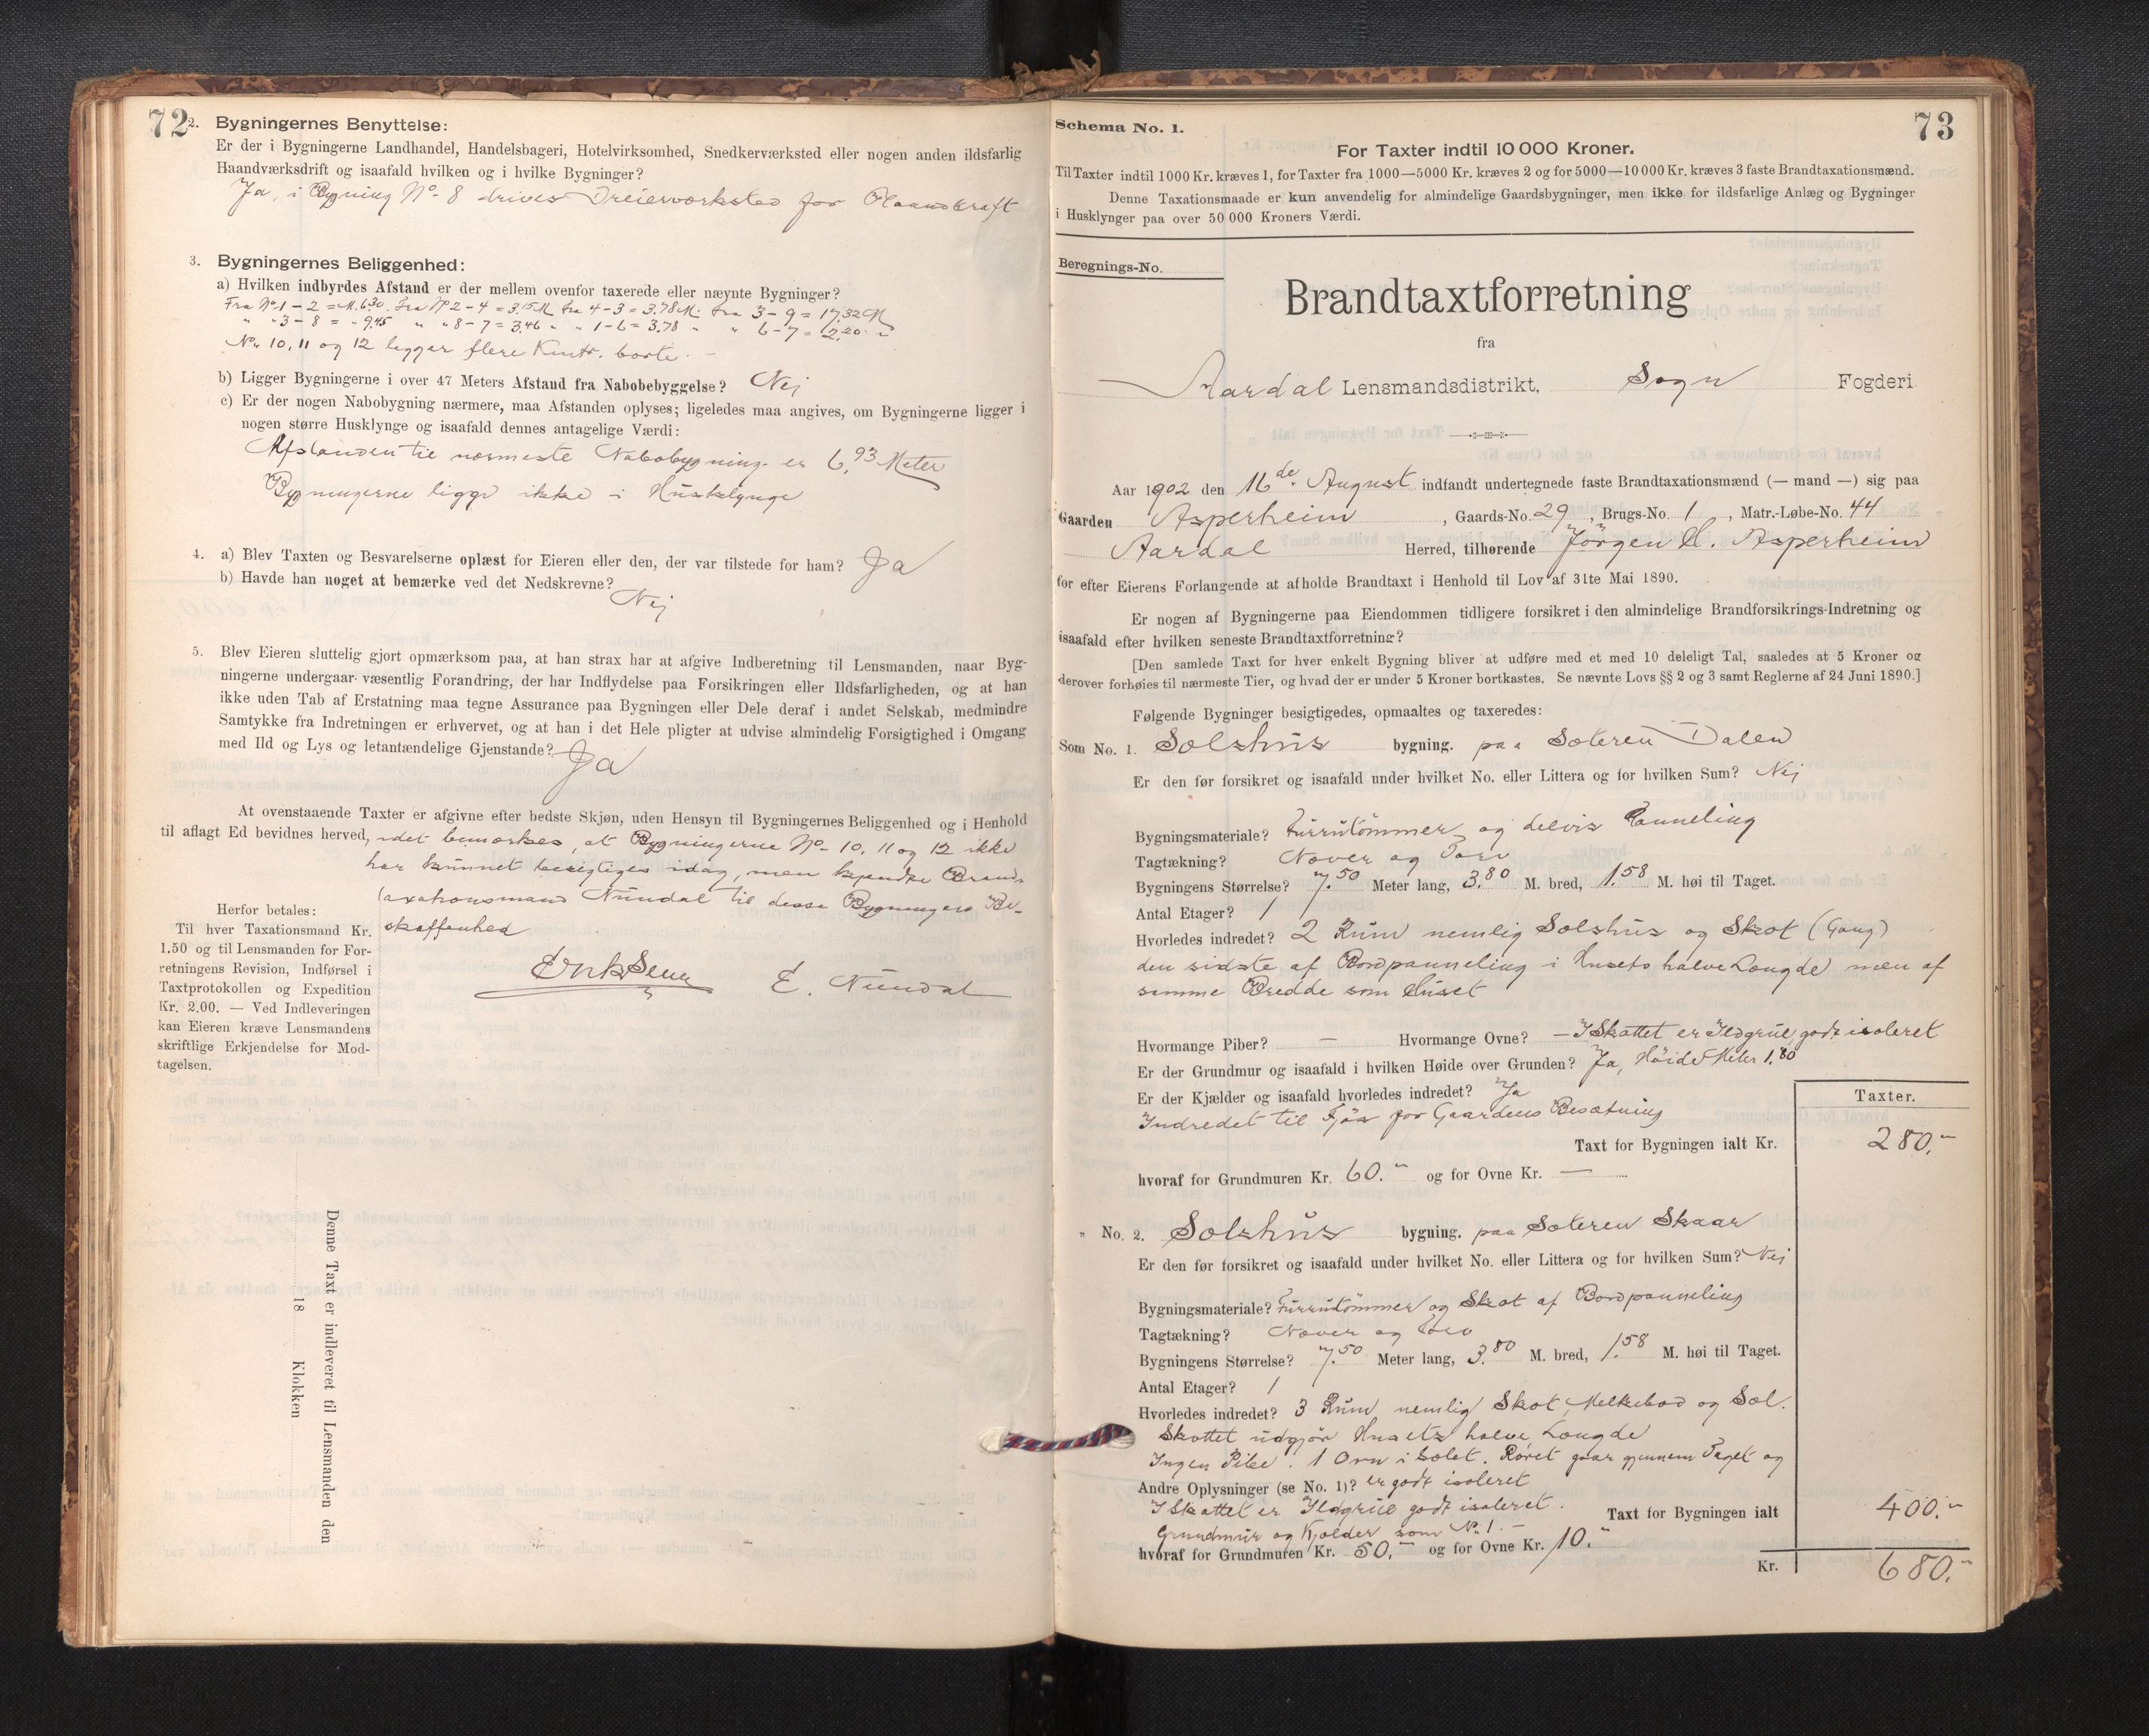 72
2. Bygningernes Benyttelse:
Er der i Bygningerne Landhandel, Handelsbageri, Hotelvirksomhed, Snedkerværksted eller nogen anden ildsfarlig
Haandværksdrift og isaafald hvilken og i hvilke Bygninger?
Ja, i Bygning No 8 drives Dreierværksted for Haandkraft
3. Bygningernes Beliggenhed:
a) Hvilken indbyrdes Afstand er der mellem ovenfor taxerede eller nævnte Bygninger?
Fra No 1 – 2 = M. 6.30. Fra No 2 – 4 = 3.15 M. fra 4 – 3 = 3.78 M. fra 3 – 9 = 17,32 M
" " 3 – 8 = " 9.45 " " 8 – 7 = 3.46 " " 1 – 6 = 3.78 " " 6 – 7 = 2.20 "
No 10, 11 og 12 ligger flere Kmtr. borte. –
b) Ligger Bygningerne i over 47 Meters Afstand fra Nabobebyggelse? Nej
c) Er der nogen Nabobygning nærmere, maa Afstanden oplyses; ligeledes maa angives, om Bygningerne ligger i
nogen større Husklynge og isaafald dennes antagelige Værdi:
Afstanden til nærmeste Nabobygning er 6,93 Meter
Bygningerne ligge ikke i Husklynge
4. a) Blev Taxten og Besvarelserne oplæst for Eieren eller den, der var tilstede for ham? Ja
b) Havde han noget at bemærke ved det Nedskrevne?
Nej
5. Blev Eieren sluttelig gjort opmærksom paa, at han strax har at afgive Indberetning til Lensmanden, naar Byg-
ningerne undergaar væsentlig Forandring, der har Indflydelse paa Forsikringen eller Ildsfarligheden, og at han
ikke uden Tab af Erstatning maa tegne Assurance paa Bygningen eller Dele deraf i andet Selskab, medmindre
Samtykke fra Indretningen er erhvervet, og at han i det Hele pligter at udvise almindelig Forsigtighed i Omgang
med Ild og Lys og letantændelige Gjenstande? Ja
At ovenstaaende Taxter er afgivne efter bedste Skjøn, uden Hensyn til Bygningernes Beliggenhed og i Henhold
til aflagt Ed bevidnes herved, idet bemærkes, at Bygningerne No 10, 11 og 12 ikke
har kunnet besigtiges idag, men kjendte Brand-
taxationsmand Nundal til disse Bygningers Be-
skaffenhed
Herfor betales:
Til hver Taxationsmand Kr.
1.50 og til Lensmanden for For-
retningens Revision, Indførsel i
Taxtprotokollen og Expedition
Kr. 2.00. — Ved Indleveringen
kan Eieren kræve Lensmandens
skriftlige Erkjendelse for Mod-
tagelsen.
E. Nundal
Denne Taxt er indleveret til Lensmanden den
18 Klokken
73
Schema No. 1.
For Taxter indtil 10 000 Kroner.
Til Taxter indtil 1000 Kr. kræves 1, for Taxter fra 1000—5000 Kr. kræves 2 og for 5000—10 000 Kr. kræves 3 faste Brandtaxationsmænd.
Denne Taxationsmaade er kun anvendelig for almindelige Gaardsbygninger, men ikke for ildsfarlige Anlæg og Bygninger
i Husklynger paa over 50 000 Kroners Værdi.
Beregnings-No.
Brandtaxtforretning
fra
Aardal Lensmandsdistrikt, Sogn Fogderi
Aar 1902 den 16de August indfandt undertegnede faste Brandtaxationsmænd (— mand —) sig paa
Gaarden Asperheim, Gaards-No. 29, Brugs-No. 1, Matr.-Løbe-No. 44
Aardal Herred, tilhørende Jörgen H. Asperheim
for efter Eierens Forlangende at afholde Brandtaxt i Henhold til Lov af 31te Mai 1890.
Er nogen af Bygningerne paa Eiendommen tidligere forsikret i den almindelige Brandforsikrings-Indretning og
isaafald efter hvilken seneste Brandtaxtforretning?
[Den samlede Taxt for hver enkelt Bygning bliver at udføre med et med 10 deleligt Tal, saaledes at 5 Kroner og
derover forhøies til nærmeste Tier, og hvad der er under 5 Kroner bortkastes. Se nævnte Lovs §§ 2 og 3 samt Reglerne af 24 Juni 1890.]
Følgende Bygninger besigtigedes, opmaaltes og taxeredes:
Som No. 1. Selshus bygning. paa Sæteren Dalen
Er den før forsikret og isaafald under hvilket No. eller Littera og for hvilken Sum? Nej
Bygningsmateriale? Furrutömmer og delvis Panneling
Tagtækning? Næver og Torv
Bygningens Størrelse? 7.50 Meter lang, 3.80 M. bred, 1.58 M. høi til Taget.
Antal Etager? 1
Hvorledes indredet? 2 Rum nemlig Selshus og Skot (Gang)
den sidste af Bordpanneling i Husets halve Længde men af
samme Bredde som Huset
Hvormange Piber? — Hvormange Ovne? — I Skottet er Ildgrue godt isoleret
Er der Grundmur og isaafald i hvilken Høide over Grunden? Ja, Höide Meter 1.80
Er der Kjælder og isaafald hvorledes indredet? Ja
Indredet til Fjös for Gaardens Besætning
Taxter.
Taxt for Bygningen ialt Kr. 280.–
hvoraf for Grundmuren Kr. 60.– og for Ovne Kr. —
" No. 2. Selshus bygning. paa Sæteren Skaar
Er den før forsikret og isaafald under hvilket No. eller Littera og for hvilken Sum? Nej
Bygningsmateriale? Furrutömmer og Skot af Bordpanneling
Tagtækning? Næver og Torv
Bygningens Størrelse? 7.50 Meter lang, 3.80 M. bred, 1.58 M. høi til Taget.
Antal Etager? 1
Hvorledes indredet? 3 Rum nemlig Skot, Melkebod og Sel.
Skottet udgjør Husets halve Længde
Ingen Pibe. 1 Ovn i Selet. Röret gaar gjennem Taget og
Andre Oplysninger (se No. 1)? er godt isoleret
I Skottet er Ildgrue godt isoleret.
Taxt for Bygningen ialt 400.–
Grundmur og Kjælder som No 1. –
hvoraf for Grundmuren Kr. 50.– og for Ovne Kr. 10.–
Kr. 680.–